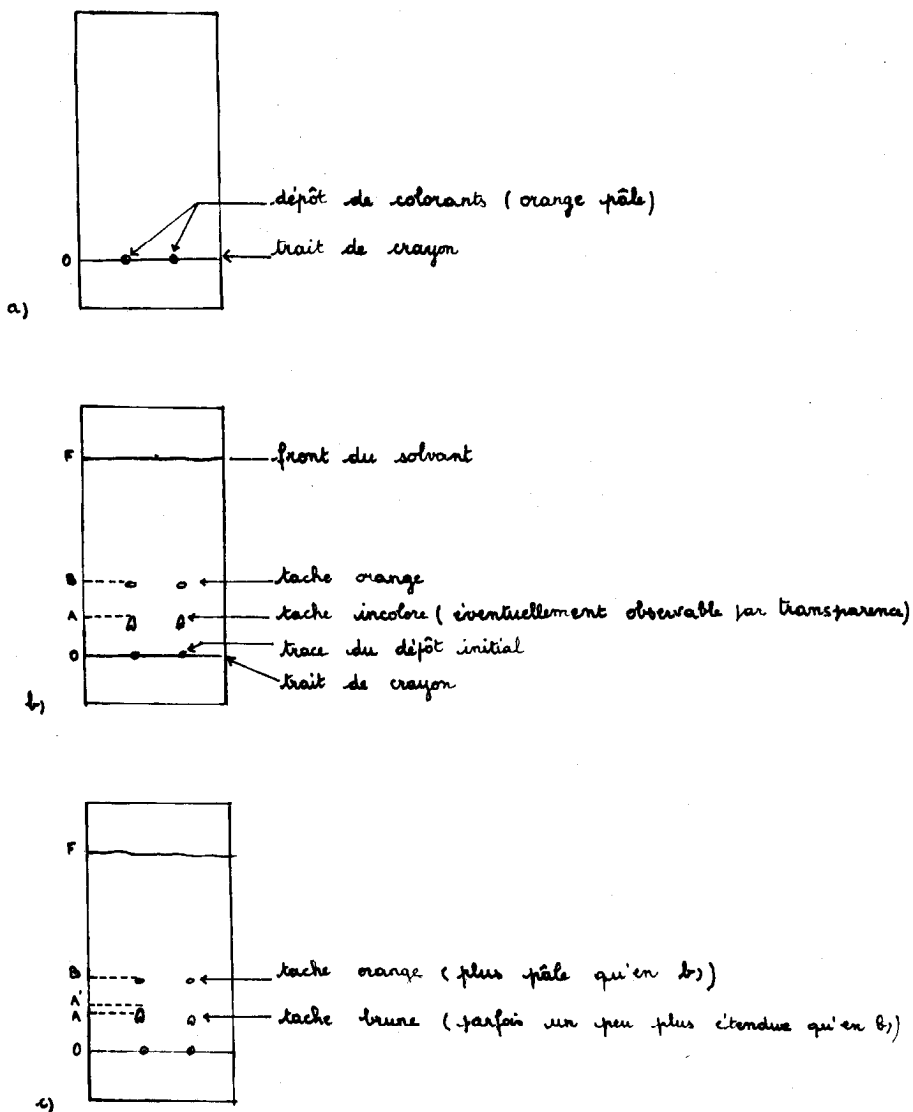 dépôt de colorants (orange pâle)
trait de crayon
O
a)
F
front du solvant
B
tache orange
A
tache incolore (éventuellement observable par transparence)
trace du dépôt initial
O
trait de crayon
b)
F
B
tache orange (plus pâle qu'en b))
A'
A
tache brune (parfois un peu plus étendue qu'en b))
O
c)